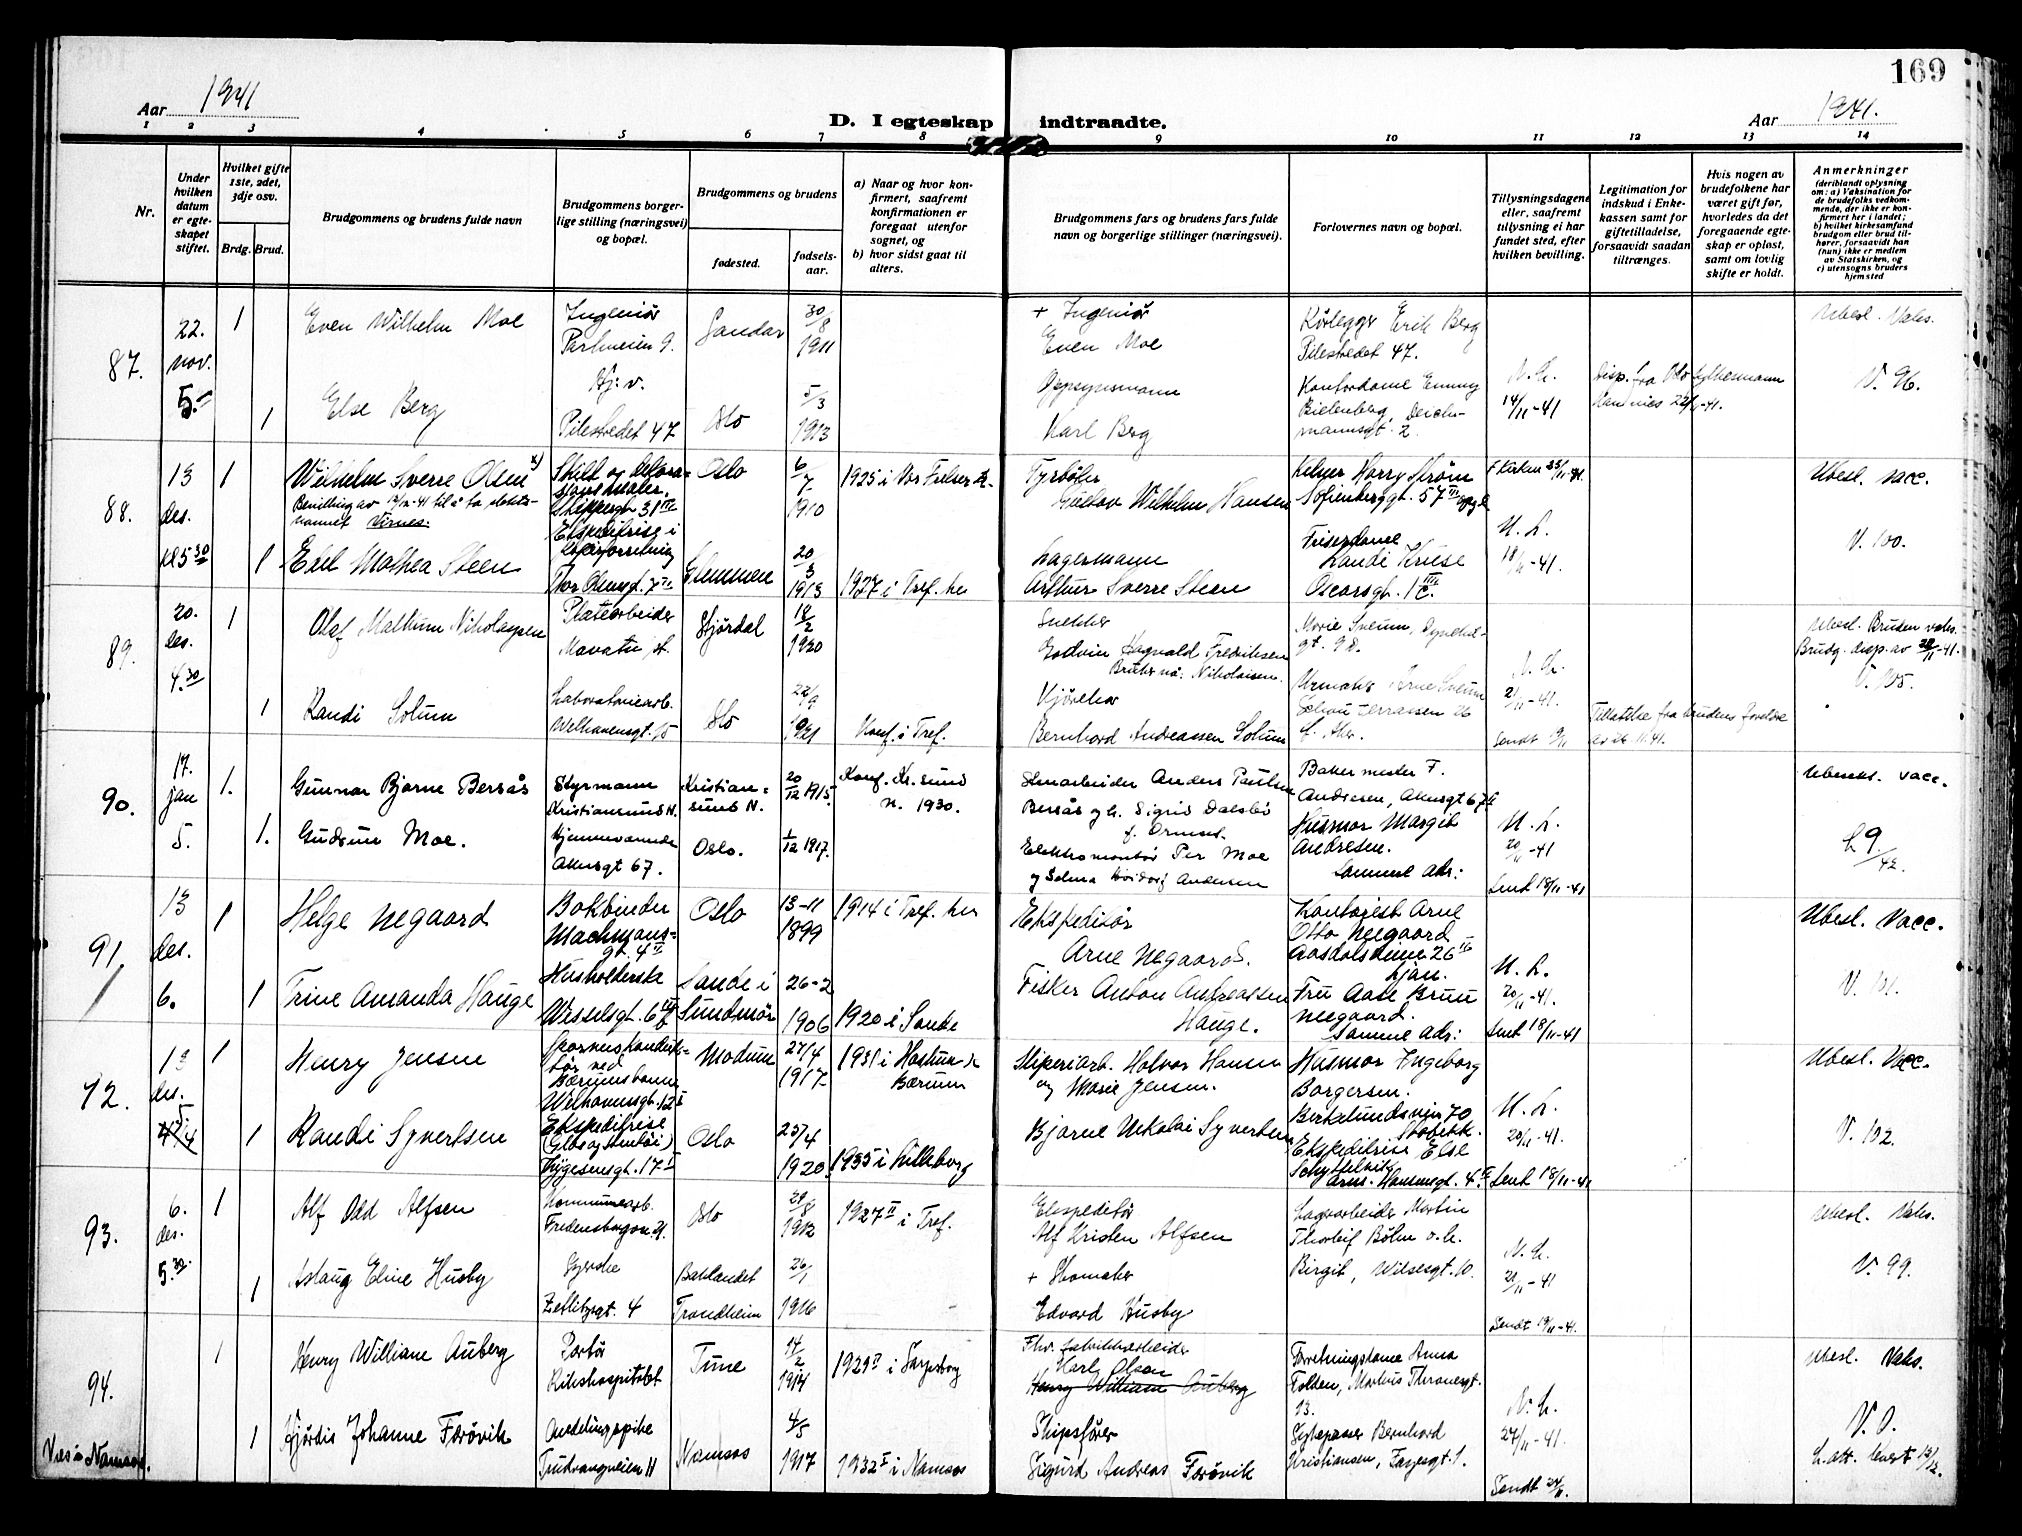 169
Aar 1941
D. I egteskap indtraadte.
Aar 1941.
1 2 3 4 5 6 7 8 9 10 11 12 13 14
Nr.
Under hvilken datum er egteskapet stiftet.
Hvilket gifte 1ste, 2det, 3dje osv.
Brdg. Brud.
Brudgommens og brudens fulde navn
Brudgommens borgerlige stilling (næringsvei) og bopæl.
Brudgommens og brudens
fødested.
fødselsaar.
a) Naar og hvor konfirmert, saafremt konfirmationen er foregaat utenfor sognet, og
b) hvor sidst gaat til alters.
Brudgommens fars og brudens fars fulde navn og borgerlige stillinger (næringsvei).
Forlovernes navn og bopæl.
Tillysningsdagene eller, saafremt tillysning ei har fundet sted, efter hvilken bevilling.
Legitimation for indskud i Enkekassen samt for giftetilladelse, forsaavidt saadan tiltrænges.
Hvis nogen av brudefolkene har været gift før, hvorledes da det foregaaende egteskap er opløst, samt om lovlig skifte er holdt.
Anmerkninger
(deriblandt oplysning om: a) Vaksination for de brudefolks vedkommende, der ikke er konfirmert her i landet; b) hvilket kirkesamfund brudgom eller brud tilhører, forsaavidt han (hun) ikke er medlem av Statskirken, og c) utensogns bruders hjemsted
87.
22. nov. 5.-
1
Even Wilhelm Moe
Ingeniør
Parkveien 9.
Sandar
30/8 1911
+ Ingeniør
Even Moe
Rørlegger Erik Berg
Pilestredet 47.
Ubesl. Vaks.
1
Else Berg
Hj: v.
Pilestredet 47
Oslo
5/3 1913
Oppsynsmann
Karl Berg
Kontordame Emmy
Bielenberg, Deichmannsgt. 2.
N. L.
14/11-41
V. 96.
88.
13 des. kl 5 30
1
Wilhelm Sverre Olsen x)
Skilt og dekorasjonsmaler.
Skippergt. 31 III
Oslo
6/7 1910
1925 i Vor Frelser k.
Fyrbøter
Gustav Wilhelm Hansen
Kelner Harry Strøm
Sofienberggt. 57 III
Ubesl. vacc.
1
Edel Mathea Steen
Ekspeditrise i
Thor Olsensgt. 7 III
Glemmen
20/3 1913
1927 i Tref. her
Lagermann
Arthur Sverre Steen
Friserdame
Randi Kruse
Oscarsgt. 1 c III
N. L.
18/11-41.
V. 100.
89.
20. des. 4.30
1
Olaf Nikolaysen
Platearbeider
Stjørdal
18/2 1920
Snekker
Godvin Hagvald Fredriksen
Marie Sveum,
Ubesl. Bruden vaks.
Brudg. disp. av 28/11-41.
1
Randi Solum
Laboratoriearb.
Welhavensgt. 15
Oslo
22/9 1921
Konf. i Tref.
Kjørekar
Bernhard Andreassen Solum
Urmaker Arne Sveum
N. L.
21/11-41.
Tillatelse fra brudens foreldre av 26.11.41.
V. 105.
90.
17. jan 5.
1.
Gunnar Bjarne Bersås
Styrmann
Kristiansund N.
Kristiansund N.
20/12 1915
Konf. Kr. sund
n. 1930.
Stenarbeider Anders Paulsen
Bersås og h. Sigrid Dalsbø
Bakermester F.
Andresen, Akersgt 67
Ubesl. vacc.
1.
Gudrun Moe.
Hjemmeværende
Akersgt 67.
Oslo.
1/12 1917.
Elektromontør Per Moe
og Selma Hedvig Andersen
Husmor Margit
Andresen.
Samme adr:
N. L.
20/11-41
Sendt 18/11-41
L 9/42
91.
13 des. 6.
1
Helge Neegaard
Bokbinder
Oslo
13-11 1899
1914 i Tref. her
Ekspeditør
Arne Neegaard.
Kontorist Arne
Otto Neegaard
Ljan.
Ubesl. Vacc.
1
Trine Amanda Hauge
Husholderske
Wesselsgt. 6
Sande i
Sundmør
26-2 1906
1920 i Sande
Fisker Anton Andreassen
Hauge.
Fru Aase Bruu
Neegaard.
Samme adr:
N. L.
20/11-41.
Sendt 18/11-41
V. 101.
92.
13 des. 5.
1
Henry Jensen
Sporveiskonduktør ved
Bærumsbanen
Welhavensgt. 12 I
Modum
27/4 1917
1931 i Haslum k
Bærum
Sliperiarb. Halvor Hansen
og Marie Jensen.
Husmor Ingeborg
Borgersen.
Berkelundsvein 70
Stabekk.
Ubesl. Vacc.
1
Randi Syvertsen
Ekspeditrise
Thygesensgt. 17 I
Oslo
25/4 1920
1935 i Lilleborg
Bjarne Nikolai Syvertsen
Ekspeditrise Else
N. L.
20/11-41.
Sendt 18/11-41
V. 102.
93.
6. des. 5.30.
1
Alf Odd Alfsen
Kommunearb.
Fredensborgvn.
Oslo
29/8 1912
1927 II i Tref.
Ekspeditør
Alf Kristen Alfsen
Lagerarbeider Martin
Thorleif Bøhn o.h.
Ubesl. Vaks.
1
Aslaug Eline Husby
Syerske
Zetlitzgt. 4
Baklandet
Trondheim
26/1 1916
+ Skomaker
Edvard Husby
Birgit, Wilsesgt. 10.
N. L.
21/11-41
Sendt 19/11-41.
V. 99.
94.
Vies i Namsos.
1
Henry William Auberg
Portør
Rikshospitalet
Tune
14/2 1914
1929 I i Sarpsborg
Fhv. fabrikkarbeider
Karl Olsen
Henry William Auberg
Forretningsdame Anna
Folden, Markus Thranesgt.
13.
Ubesl. Vaks.
1
Hjørdis Johanne Forøvik
Avdelingspike
Trudvangveien 11
Namsos
4/5 1917
1932 I i Namsos
Skipsfører
Sigurd Andreas Forøvik
Sykepasser Bernhard
Kristiansen,
N. L.
24/11-41.
Sendt 24/11.
V. O.
L. att. levert 13/12.